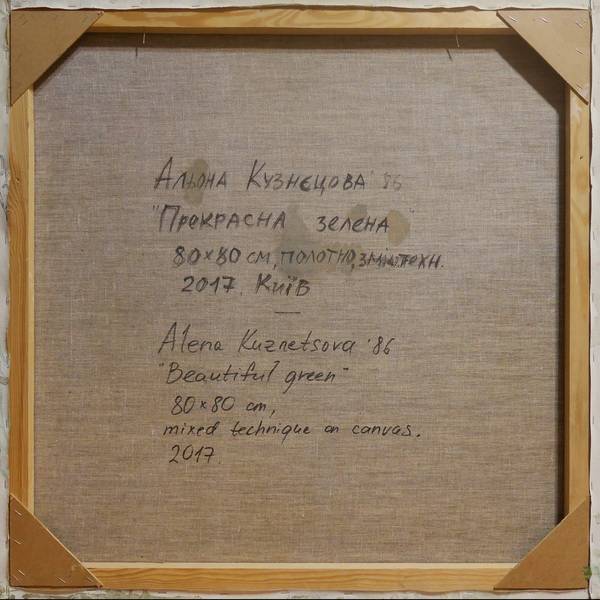 Альона Кузнєцова '86
"Прекрасна зелена"
80×80 см, полотно, зміш.техн.
2017. Київ
Alena Kuznetsova '86
"Beautiful green"
80×80 cm,
mixed technique on canvas.
2017.